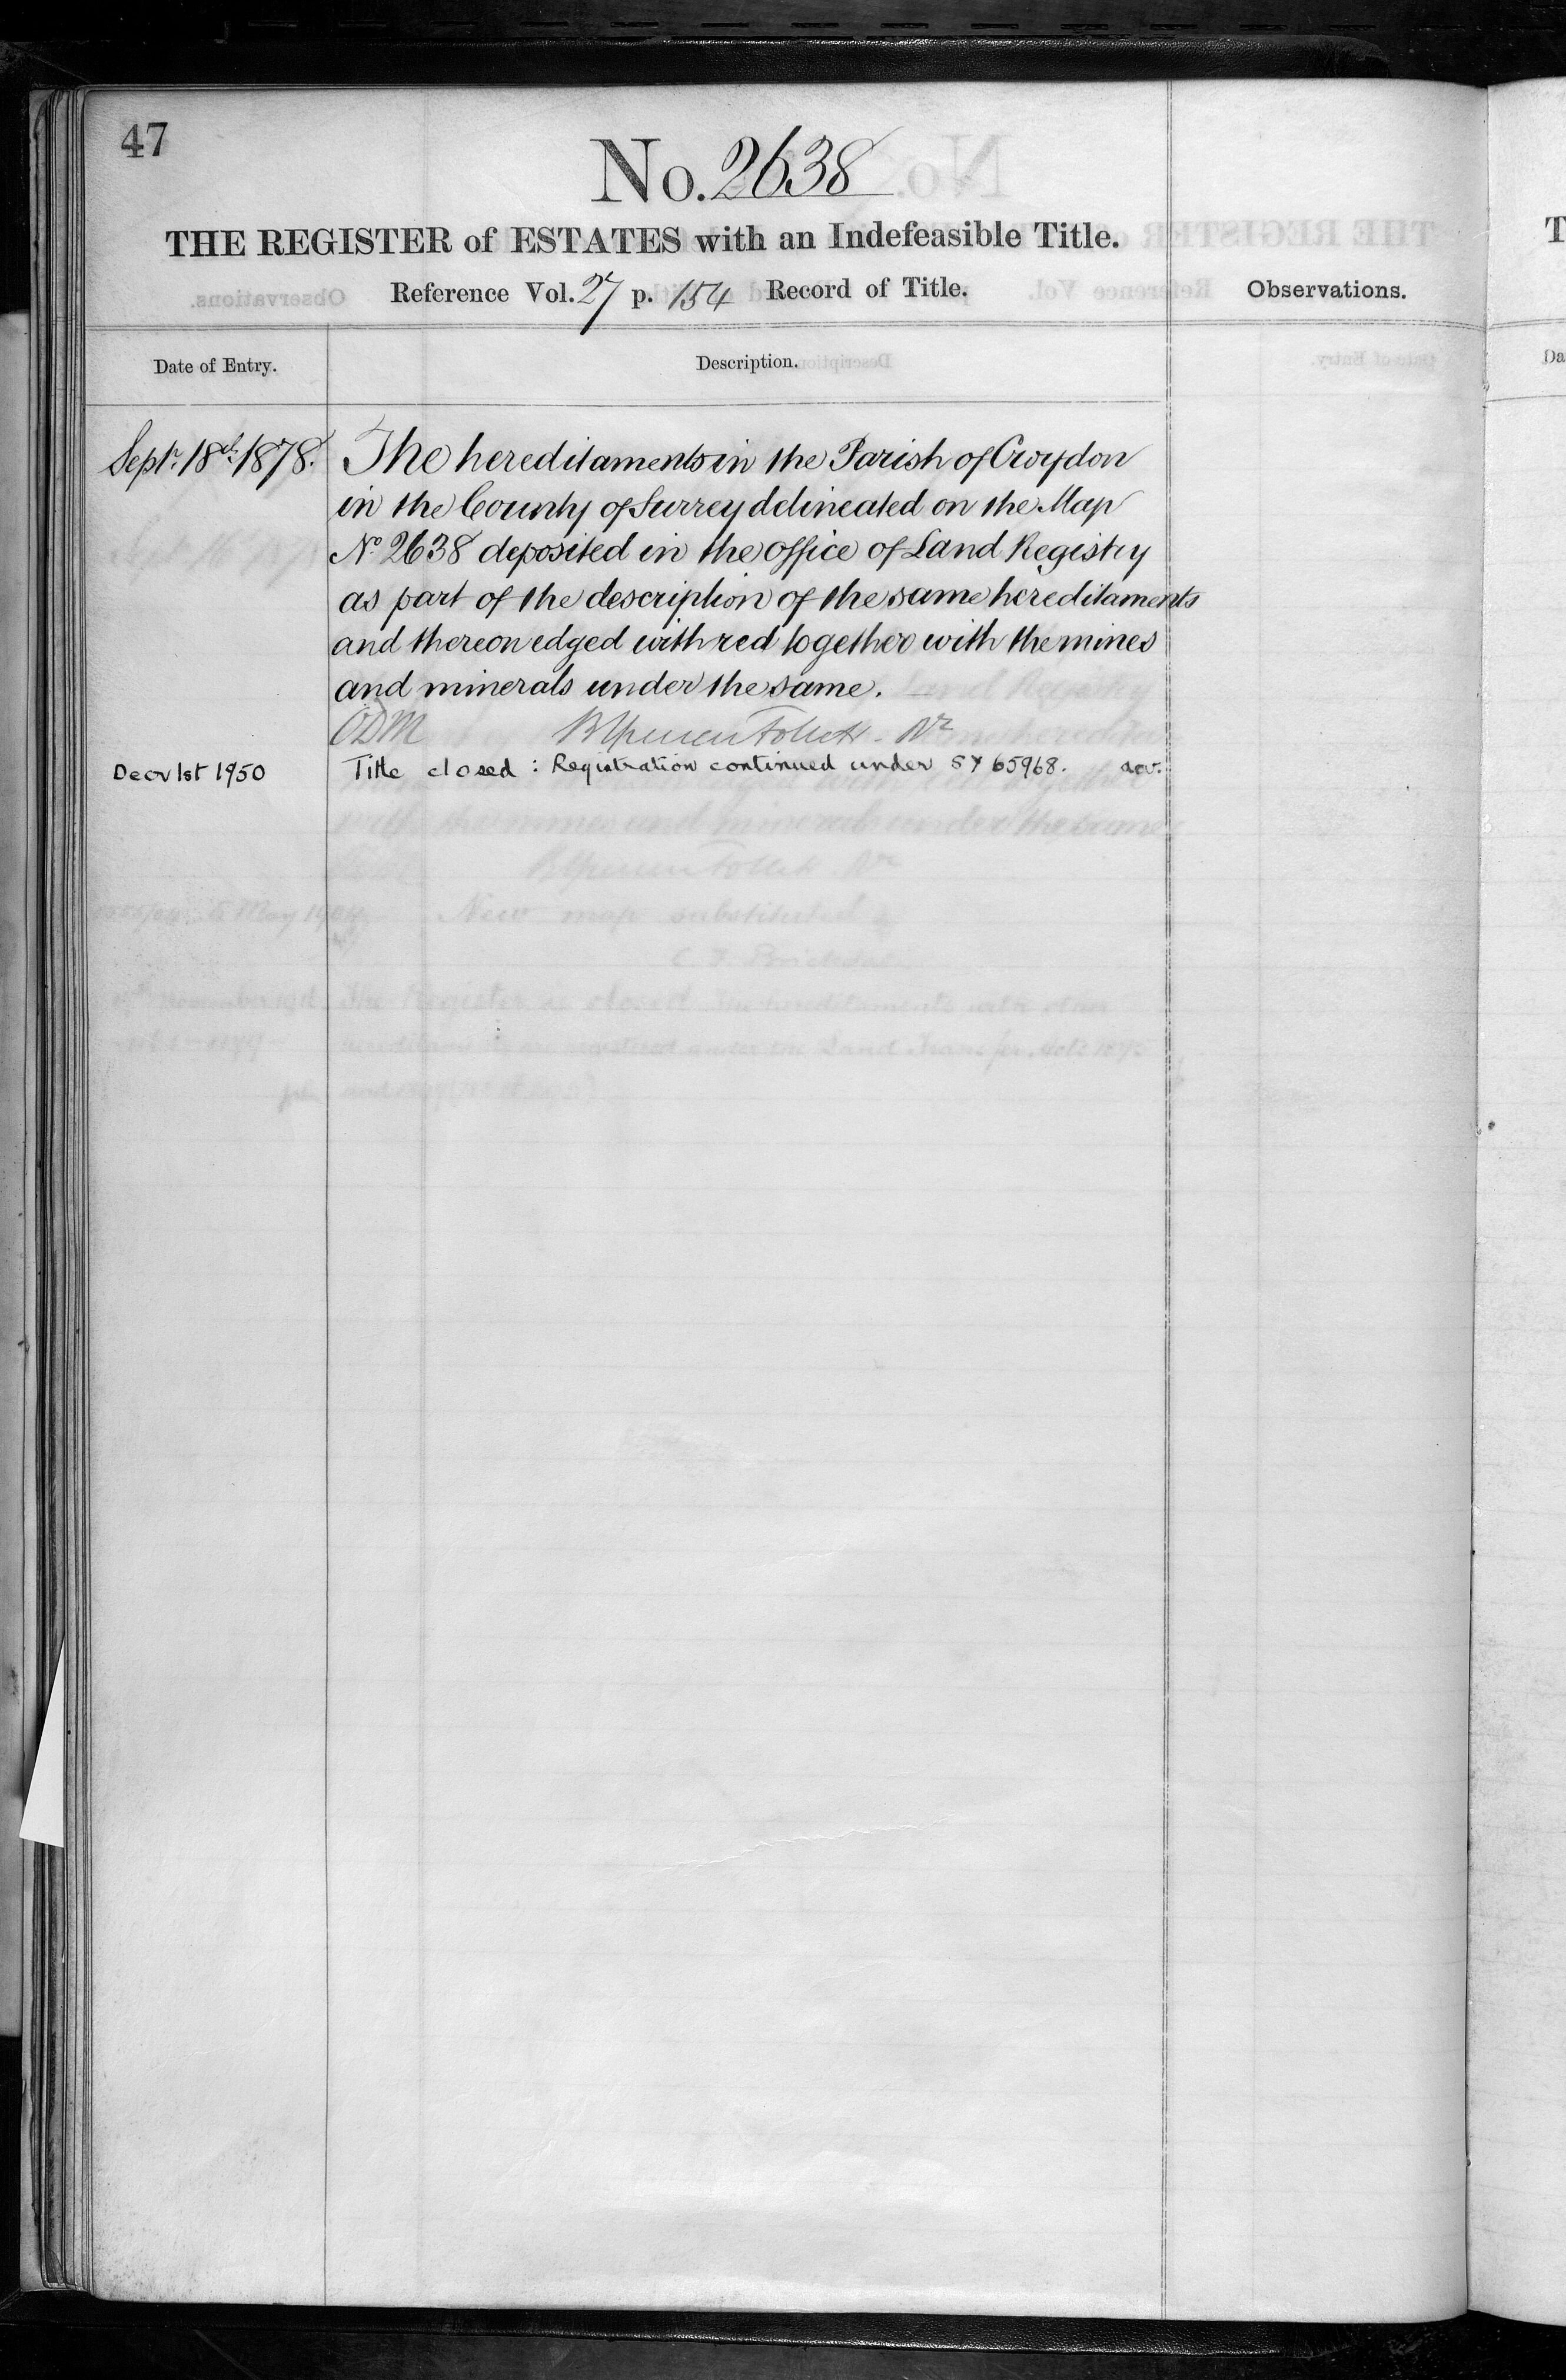 47
No. 2638
THE REGISTER of ESTATES with an Indefeasible Title.
Reference Vol. 27 p. 154 Record of Title.
Observations.
Date of Entry.
Description.
Septr. 18th 1878.
The hereditaments in the Parish of Croydon
in the County of Surrey delineated on the Map
No 2638 deposited in the office of Land Registry
as part of the description of the same hereditaments
and thereon edged with red together with the mines
and minerals under the same.
ODM
Decr 1st 1950
Title closed : Registration continued under SY 65968.